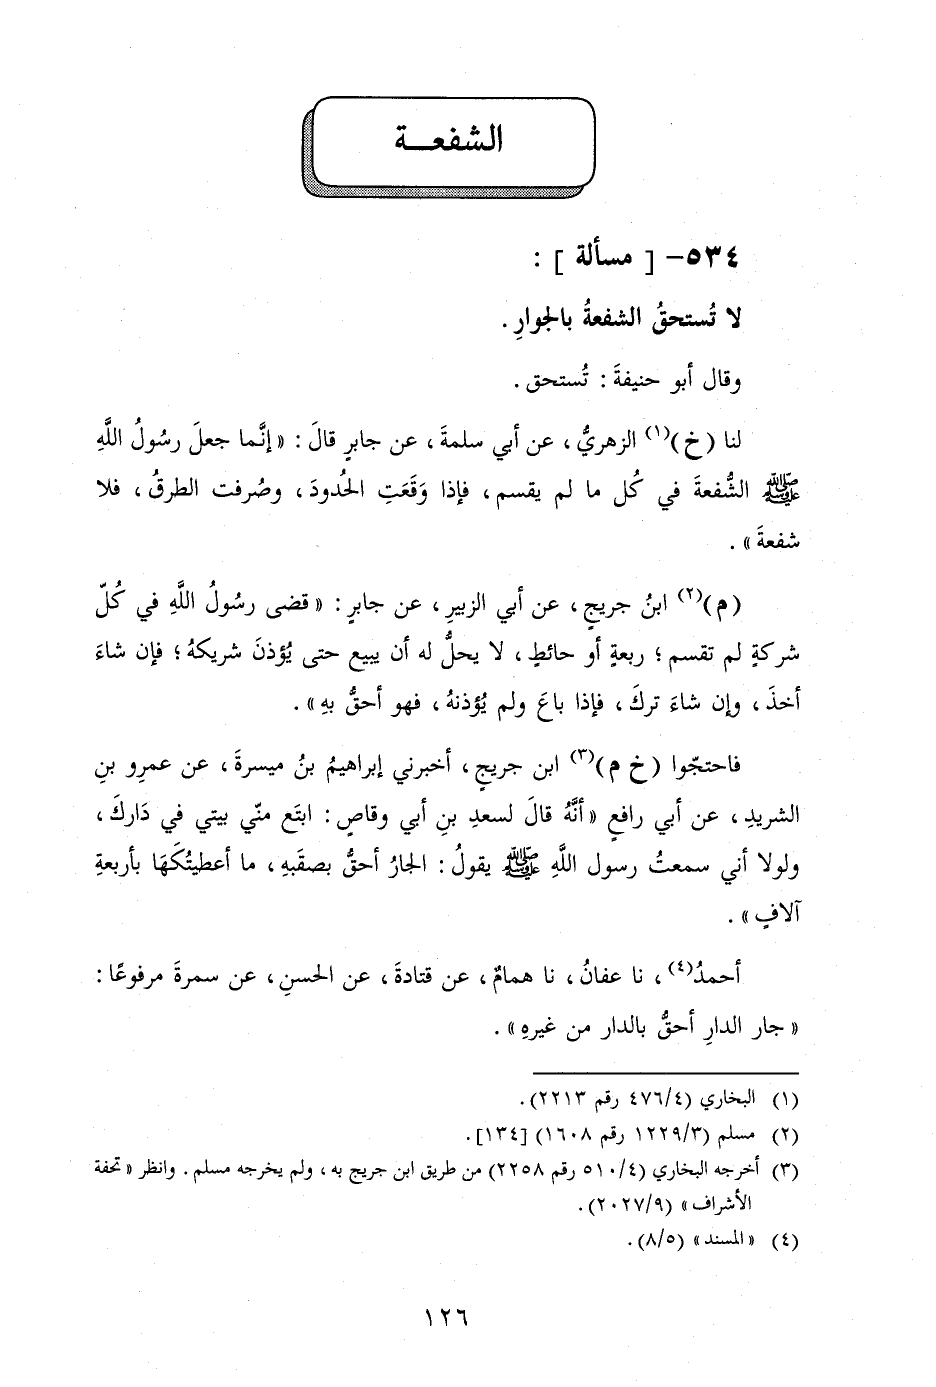 الشفعـــة
٥٣٤- [ مسألة ] :
لا تُستحقُ الشفعةُ بالجوارِ .
وقال أبو حنيفةَ : تُستحق .
لنا (خ)(١) الزهريُّ، عن أبي سلمةَ، عن جابرٍ قالَ : «إنَّما جعلَ رسُولُ اللَّهِ
ﷺ الشُّفعةَ في كُل ما لم يقسم، فإذا وَقَعَتِ الحُدودَ، وصُرفت الطرقُ، فلا
شفعةَ» .
(م)(٢) ابنُ جريجٍ، عن أبي الزبيرِ، عن جابرٍ : «قضى رسُولُ اللَّهِ في كُلّ
شركةٍ لم تقسم ؛ ربعةٍ أو حائطٍ، لا يحلُّ له أن يبيع حتى يُؤذنَ شريكهُ ؛ فإن شاءَ
أخذَ، وإن شاءَ تركَ، فإذا باعَ ولم يُؤذنهُ، فهو أحقُّ بهِ» .
فاحتجّوا (خ م)(٣) ابن جريجٍ، أخبرني إبراهيمُ بنُ ميسرةَ، عن عمرِو بنِ
الشريدِ، عن أبي رافعٍ «أنَّهُ قالَ لسعدِ بنِ أبي وقاصٍ : ابتَع منّي بيتي في دَاركَ،
ولولا أني سمعتُ رسول اللَّهِ ﷺ يقولُ : الجارُ أحقُّ بصقَبهِ، ما أعطيتُكَهَا بأربعةِ
آلافٍ» .
أحمدُ(٤)، نا عفانُ، نا همامٌ، عن قتادةَ، عن الحسنِ، عن سمرةَ مرفوعًا :
«جار الدارِ أحقُّ بالدار من غيرهِ» .
(١) البخاري (٤٧٦/٤ رقم ٢٢١٣).
(٢) مسلم (١٢٢٩/٣ رقم ١٦٠٨) [١٣٤].
(٣) أخرجه البخاري (٥١٠/٤ رقم ٢٢٥٨) من طريق ابن جريج به، ولم يخرجه مسلم. وانظر «تحفة
الأشراف» (٢٠٢٧/٩).
(٤) «المسند» (٨/٥).
١٢٦